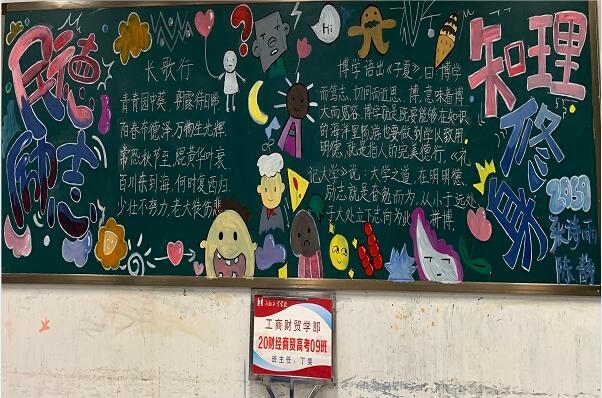 明德
励志
Hi
长歌行
青青园中葵,朝露待日晞.
阳春布德泽,万物生光辉.
常恐秋节至,焜黄华叶衰.
百川东到海,何时复西归.
少壮不努力,老大徒伤悲
博学语出《子夏》,曰 博学
而笃志,切问而近思.博,意味着博
大而宽容.博学就是既要能够在知识
的海洋里畅游也要做到学以致用
明德,就是指人的完美德行。《礼
记大学》说:大学之道,在明明德,
励志就是奋勉而为,从小于远处
于大处立下志向为此 拼搏
知理
修身
陈静
工商财贸学部
20财经商贸高考09班
班主任:丁雯